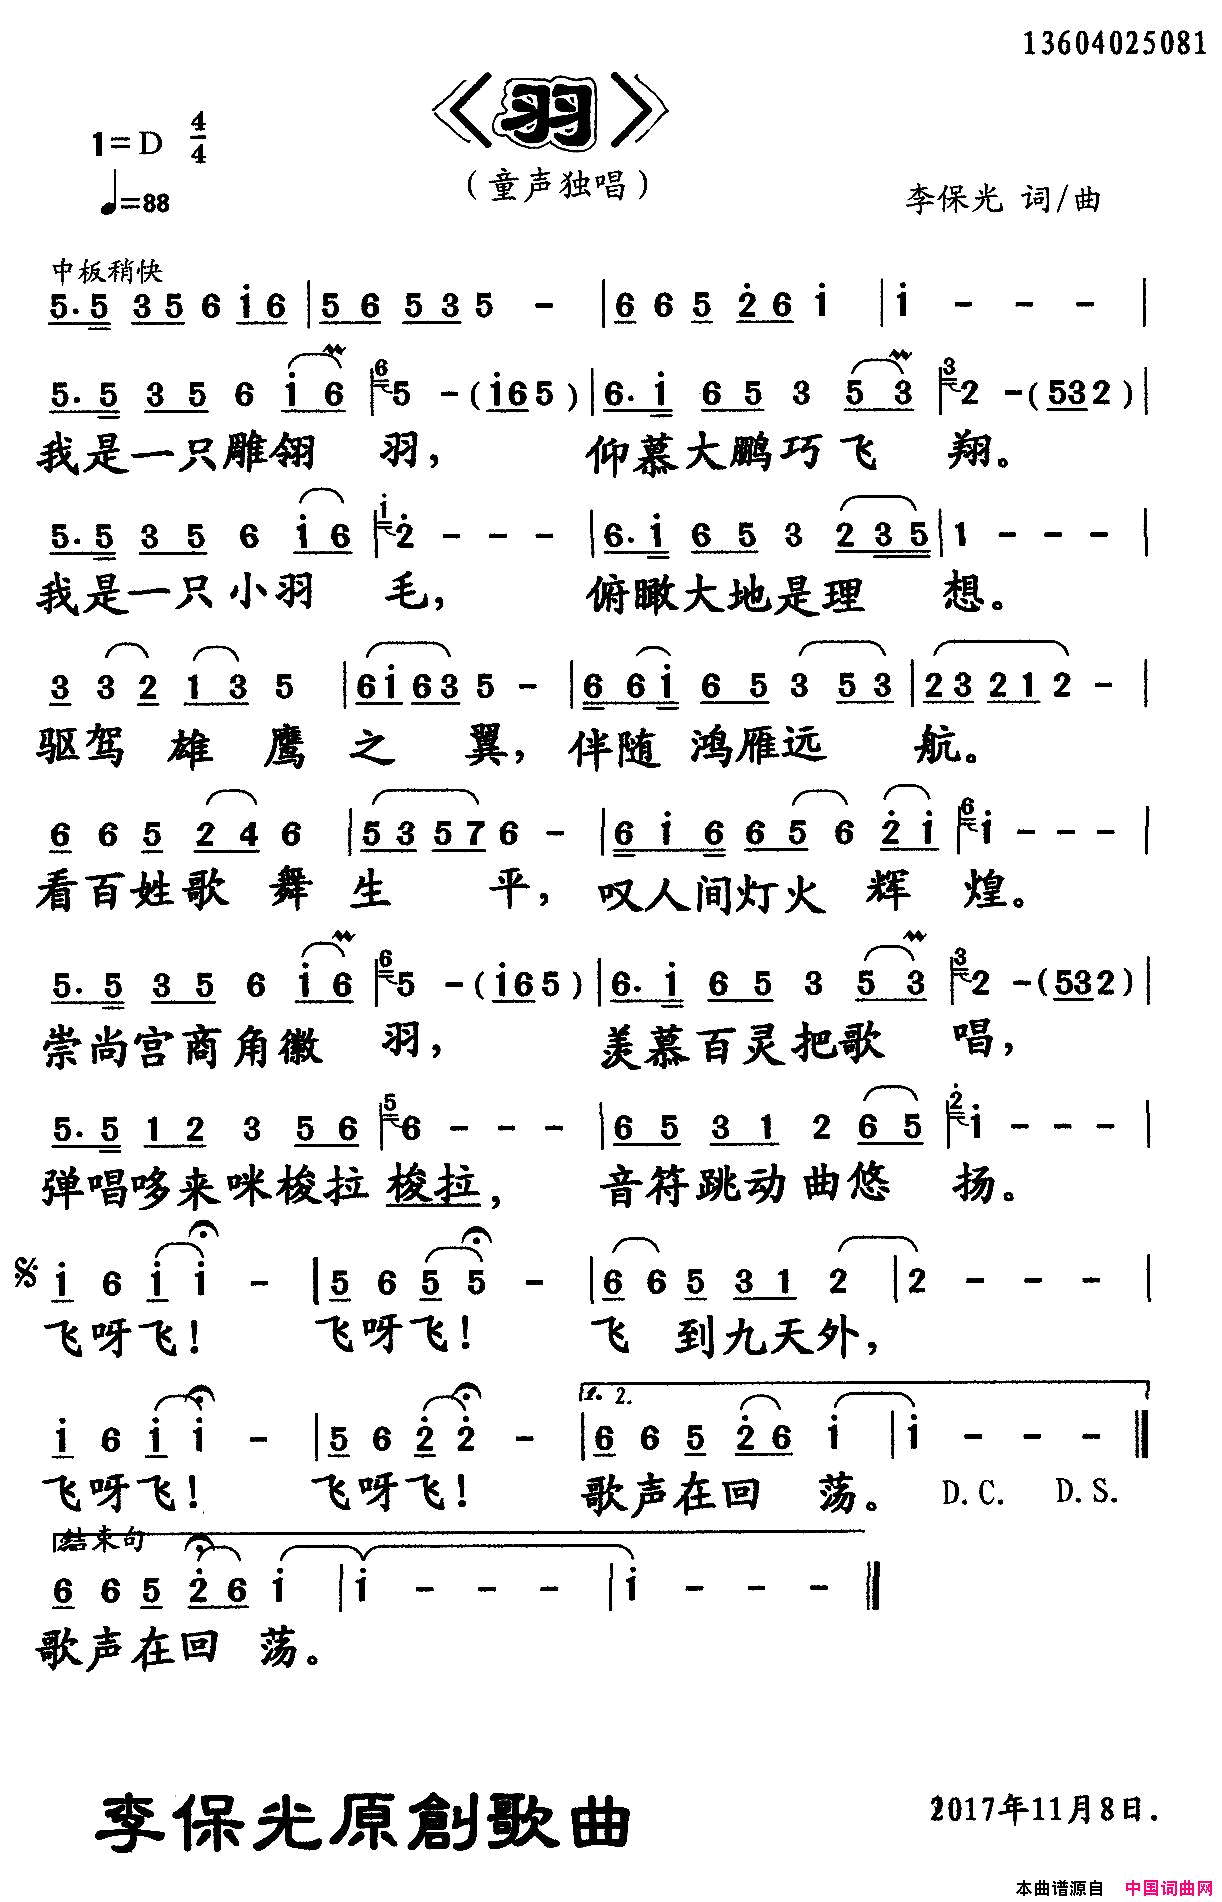 13604025081
《羽》
1=D 4/4
(童声独唱)
♩=88
李保光 词/曲
中板稍快
5. 5 3 5 6 i 6 | 5 6 5 3 5 - | 6 6 5 2 6 i | i - - - |
5. 5 3 5 6 i 6 6 5 - (i 6 5) | 6. i 6 5 3 5 3 3 2 - (5 3 2) |
我是一只雕翎 羽, 仰慕大鹏巧飞 翔。
5. 5 3 5 6 i 6 | i 2 - - - | 6. i 6 5 3 2 3 5 | 1 - - - |
我是一只小羽 毛, 俯瞰大地是理 想。
3 3 2 1 3 5 | 6 i 6 3 5 - | 6 6 i 6 5 3 5 3 | 2 3 2 1 2 - |
驱驾 雄 鹰 之 翼, 伴随 鸿雁远 航。
6 6 5 2 4 6 | 5 3 5 7 6 - | 6 i 6 6 5 6 2 i | 6 i - - - |
看百姓歌 舞 生 平, 叹人间灯火 辉 煌。
5. 5 3 5 6 i 6 | 6 5 - (i 6 5) | 6. i 6 5 3 5 3 | 3 2 - (5 3 2) |
崇尚宫商角徽 羽, 羡慕百灵把歌 唱,
5. 5 1 2 3 5 6 | 5 6 - - - | 6 5 3 1 2 6 5 | 2 i - - - |
弹唱哆来咪梭拉 梭拉, 音符跳动曲悠 扬。
i 6 i i - | 5 6 5 5 - | 6 6 5 3 1 2 | 2 - - - |
飞呀飞! 飞呀飞! 飞 到九天外,
1. 2.
i 6 i i - | 5 6 2 2 - | 6 6 5 2 6 i | i - - - ‖
飞呀飞! 飞呀飞! 歌声在回 荡。 D.C. D.S.
结束句
6 6 5 2 6 i | i - - - | i - - - ‖
歌声在回 荡。
李保光原創歌曲
2017年11月8日.
本曲谱源自 中国词曲网